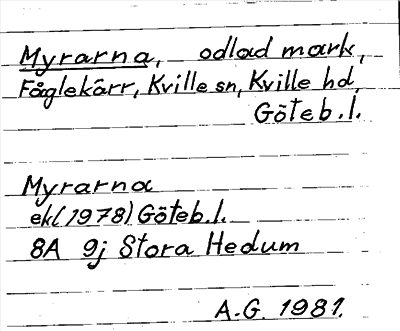 Myrarna, odlad mark,
Fåglekärr, Kville sn, Kville hd,
Göteb. l.
Myrarna
ek (1978) Göteb. l.
8A 9j Stora Hedum
A.G. 1981.